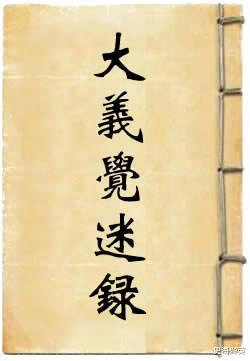 大義覺迷録